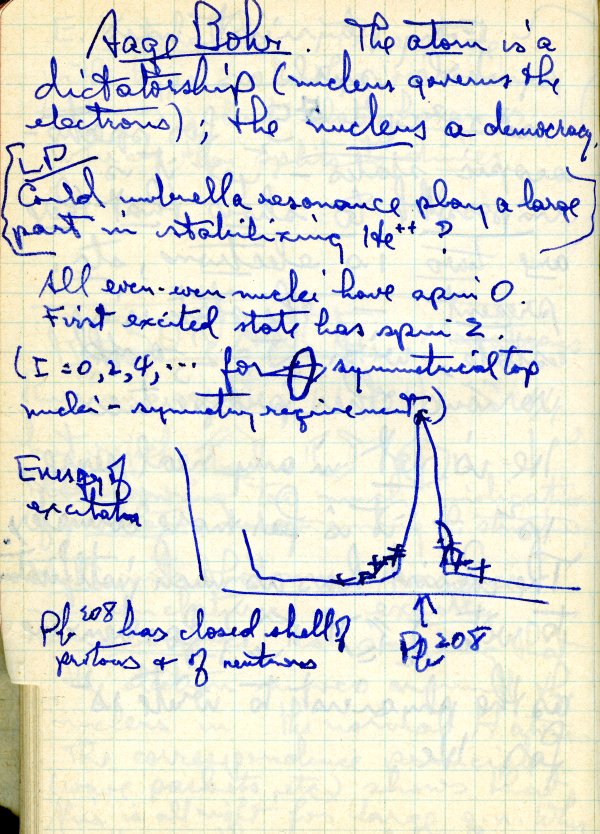 Aage Bohr. The atom is a
dictatorship (nucleus governs the
electrons); the nucleus a democracy.
LP
Could umbrella resonance play a large
part in stabilizing He++ ?
All even-even nuclei have spin 0.
First excited state has spin 2.
(I = 0, 2, 4, ... for symmetrical top
nuclei - symmetry requirement)
Energy of
excitation
Pb208 has closed shell of
protons & of neutrons
Pb208